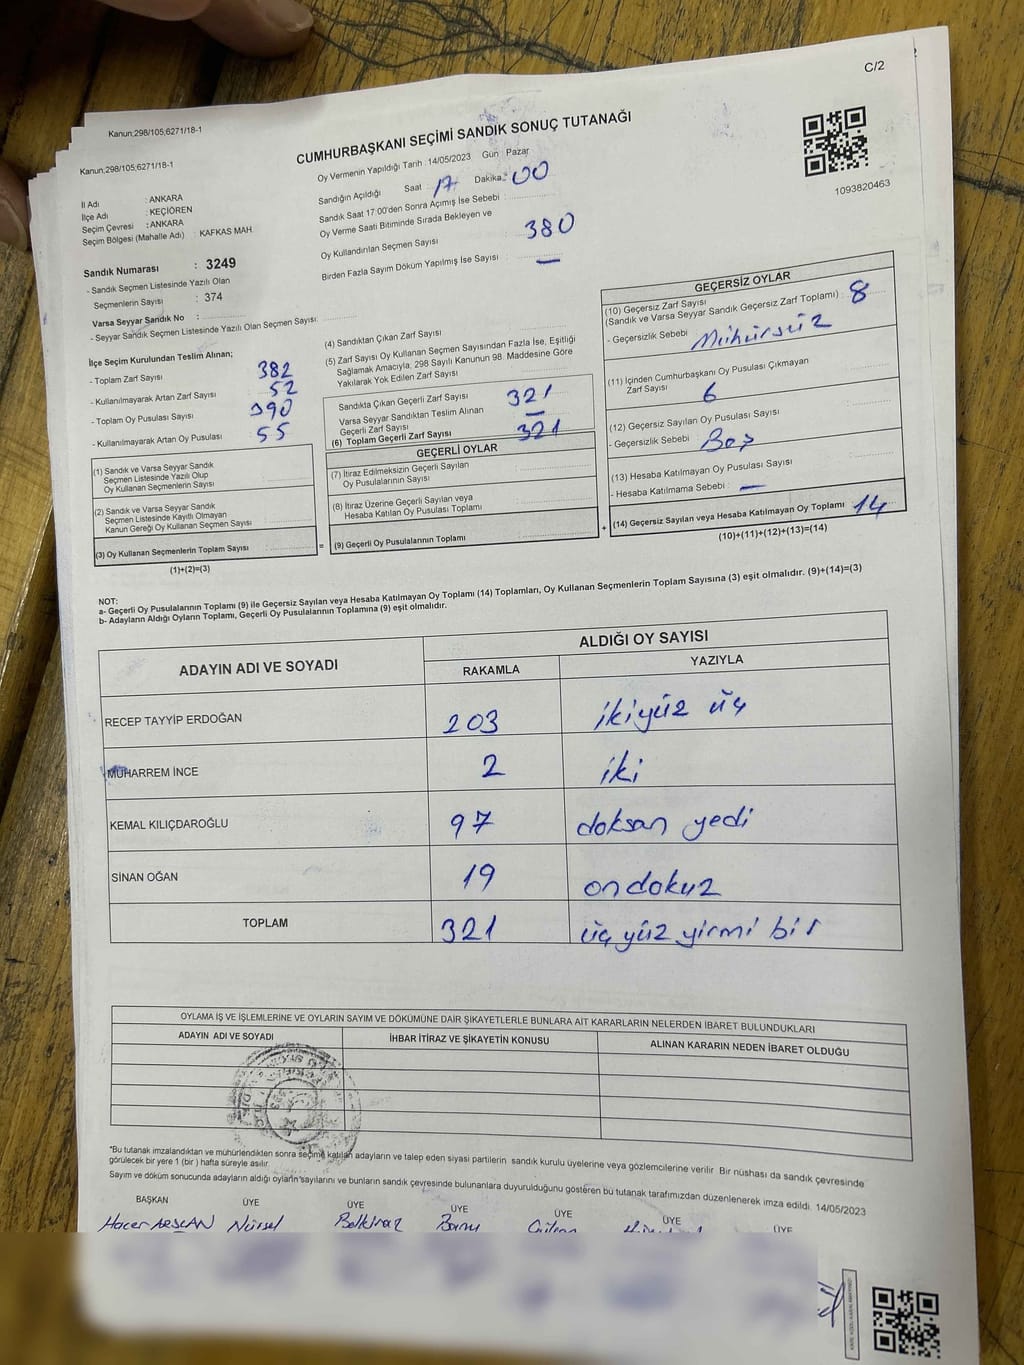 C/2
Kanun;298/105;6271/18-1
Kanun;298/105;6271/18-1
CUMHURBAŞKANI SEÇİMİ SANDIK SONUÇ TUTANAĞI
Oy Vermenin Yapıldığı Tarih : 14/05/2023 Gün : Pazar
Sandığın Açıldığı Saat 17 Dakika : 00
Sandık Saat 17:00'den Sonra Açımış İse Sebebi :
Oy Verme Saati Bitiminde Sırada Bekleyen ve
Oy Kullandırılan Seçmen Sayısı : 380
Birden Fazla Sayım Döküm Yapılmış İse Sayısı : —
1093820463
İl Adı : ANKARA
İlçe Adı : KEÇİÖREN
Seçim Çevresi : ANKARA
Seçim Bölgesi (Mahalle Adı) : KAFKAS MAH.
Sandık Numarası : 3249
- Sandık Seçmen Listesinde Yazılı Olan
Seçmenlerin Sayısı : 374
Varsa Seyyar Sandık No :
- Seyyar Sandık Seçmen Listesinde Yazılı Olan Seçmen Sayısı:
İlçe Seçim Kurulundan Teslim Alınan;
- Toplam Zarf Sayısı : 382
- Kullanılmayarak Artan Zarf Sayısı : 52
- Toplam Oy Pusulası Sayısı : 390
- Kullanılmayarak Artan Oy Pusulası : 55
(1) Sandık ve Varsa Seyyar Sandık
Seçmen Listesinde Yazılı Olup
Oy Kullanan Seçmenlerin Sayısı :
(2) Sandık ve Varsa Seyyar Sandık
Seçmen Listesinde Kayıtlı Olmayan
Kanun Gereği Oy Kullanan Seçmen Sayısı :
(3) Oy Kullanan Seçmenlerin Toplam Sayısı :
(1)+(2)=(3)
(4) Sandıktan Çıkan Zarf Sayısı :
(5) Zarf Sayısı Oy Kullanan Seçmen Sayısından Fazla İse, Eşitliği
Sağlamak Amacıyla, 298 Sayılı Kanunun 98. Maddesine Göre
Yakılarak Yok Edilen Zarf Sayısı :
Sandıkta Çıkan Geçerli Zarf Sayısı : 321
Varsa Seyyar Sandıktan Teslim Alınan
Geçerli Zarf Sayısı : —
(6) Toplam Geçerli Zarf Sayısı : 321
GEÇERLİ OYLAR
(7) İtiraz Edilmeksizin Geçerli Sayılan
Oy Pusulalarının Sayısı :
(8) İtiraz Üzerine Geçerli Sayılan veya
Hesaba Katılan Oy Pusulası Toplamı :
= (9) Geçerli Oy Pusulalarının Toplamı :
GEÇERSİZ OYLAR
(10) Geçersiz Zarf Sayısı
(Sandık ve Varsa Seyyar Sandık Geçersiz Zarf Toplamı) : 8
- Geçersizlik Sebebi : Mühürsüz
(11) İçinden Cumhurbaşkanı Oy Pusulası Çıkmayan
Zarf Sayısı : 6
(12) Geçersiz Sayılan Oy Pusulası Sayısı :
- Geçersizlik Sebebi : Boş
(13) Hesaba Katılmayan Oy Pusulası Sayısı :
- Hesaba Katılmama Sebebi : —
+ (14) Geçersiz Sayılan veya Hesaba Katılmayan Oy Toplamı : 14
(10)+(11)+(12)+(13)=(14)
NOT:
a- Geçerli Oy Pusulalarının Toplamı (9) ile Geçersiz Sayılan veya Hesaba Katılmayan Oy Toplamı (14) Toplamları, Oy Kullanan Seçmenlerin Toplam Sayısına (3) eşit olmalıdır. (9)+(14)=(3)
b- Adayların Aldığı Oyların Toplamı, Geçerli Oy Pusulalarının Toplamına (9) eşit olmalıdır.
ADAYIN ADI VE SOYADI
ALDIĞI OY SAYISI
RAKAMLA YAZIYLA
RECEP TAYYİP ERDOĞAN 203 ikiyüz üç
MUHARREM İNCE 2 iki
KEMAL KILIÇDAROĞLU 97 doksan yedi
SİNAN OĞAN 19 ondokuz
TOPLAM 321 üç yüz yirmi bir
OYLAMA İŞ VE İŞLEMLERİNE VE OYLARIN SAYIM VE DÖKÜMÜNE DAİR ŞİKAYETLERLE BUNLARA AİT KARARLARIN NELERDEN İBARET BULUNDUKLARI
ADAYIN ADI VE SOYADI İHBAR İTİRAZ VE ŞİKAYETİN KONUSU ALINAN KARARIN NEDEN İBARET OLDUĞU
*Bu tutanak imzalandıktan ve mühürlendikten sonra seçime katılan adayların ve talep eden siyasi partilerin sandık kurulu üyelerine veya gözlemcilerine verilir Bir nüshası da sandık çevresinde
görülecek bir yere 1 (bir ) hafta süreyle asılır.
Sayım ve döküm sonucunda adayların aldığı oyların sayılarını ve bunların sandık çevresinde bulunanlara duyurulduğunu gösteren bu tutanak tarafımızdan düzenlenerek imza edildi. 14/05/2023
BAŞKAN ÜYE ÜYE ÜYE ÜYE ÜYE ÜYE
Hacer ARSLAN Nürsel Belkinaz Banu Gülcan